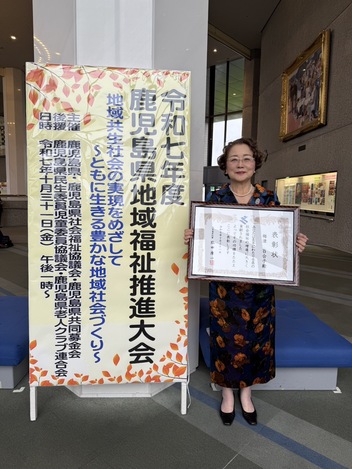 令和七年度
鹿児島県地域福祉推進大会
地域共生社会の実現をめざして
～ともに生きる豊かな地域社会づくり～
主催 鹿児島県・鹿児島県社会福祉協議会・鹿児島県共同募金会
後援 鹿児島県民生委員児童委員協議会・鹿児島県老人クラブ連合会
日時 令和七年十月三十一日(金) 午後一時～
表彰状